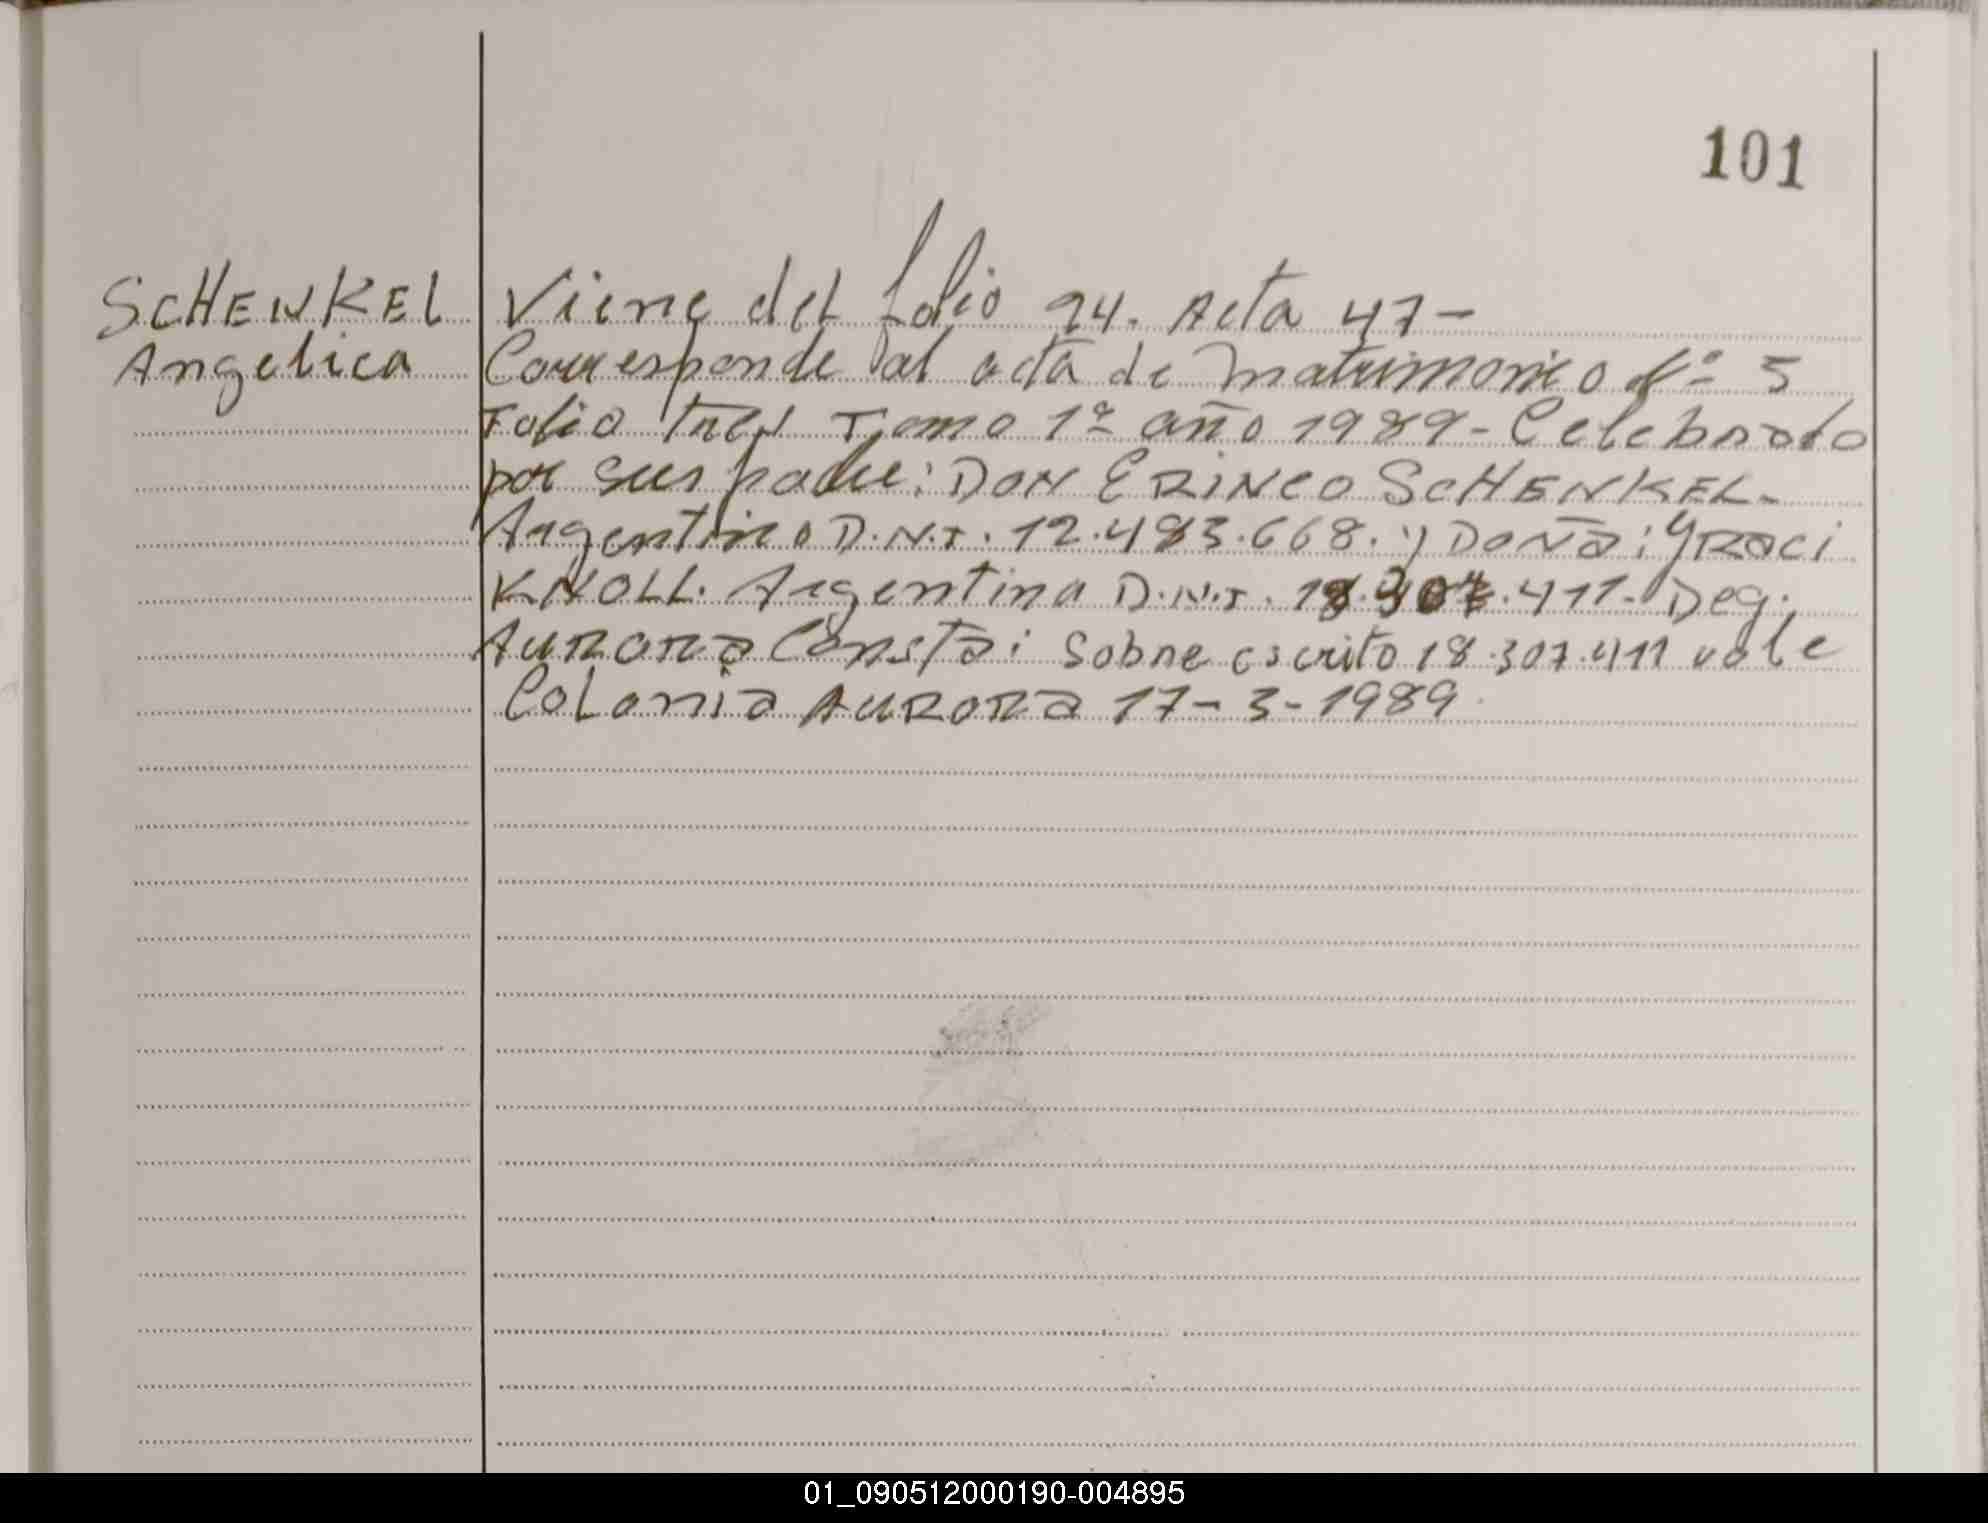 101
SCHENKEL
Angelica
Viene del folio 24. Acta 47-
Corresponde al acta de matrimonio Nº 5
Folio tres Tomo 1º año 1989- Celebrado
por sus padre: DON ERINEO SCHENKEL-
Argentino D.N.I. 12.483.668. y DOÑA: YRACI
KNOLL. Argentina D.N.I. 18.307.411- Deg.
AURORA Consta: Sobre escrito 18.307.411 vale
Colonia AURORA 17-3-1989.
01_090512000190-004895